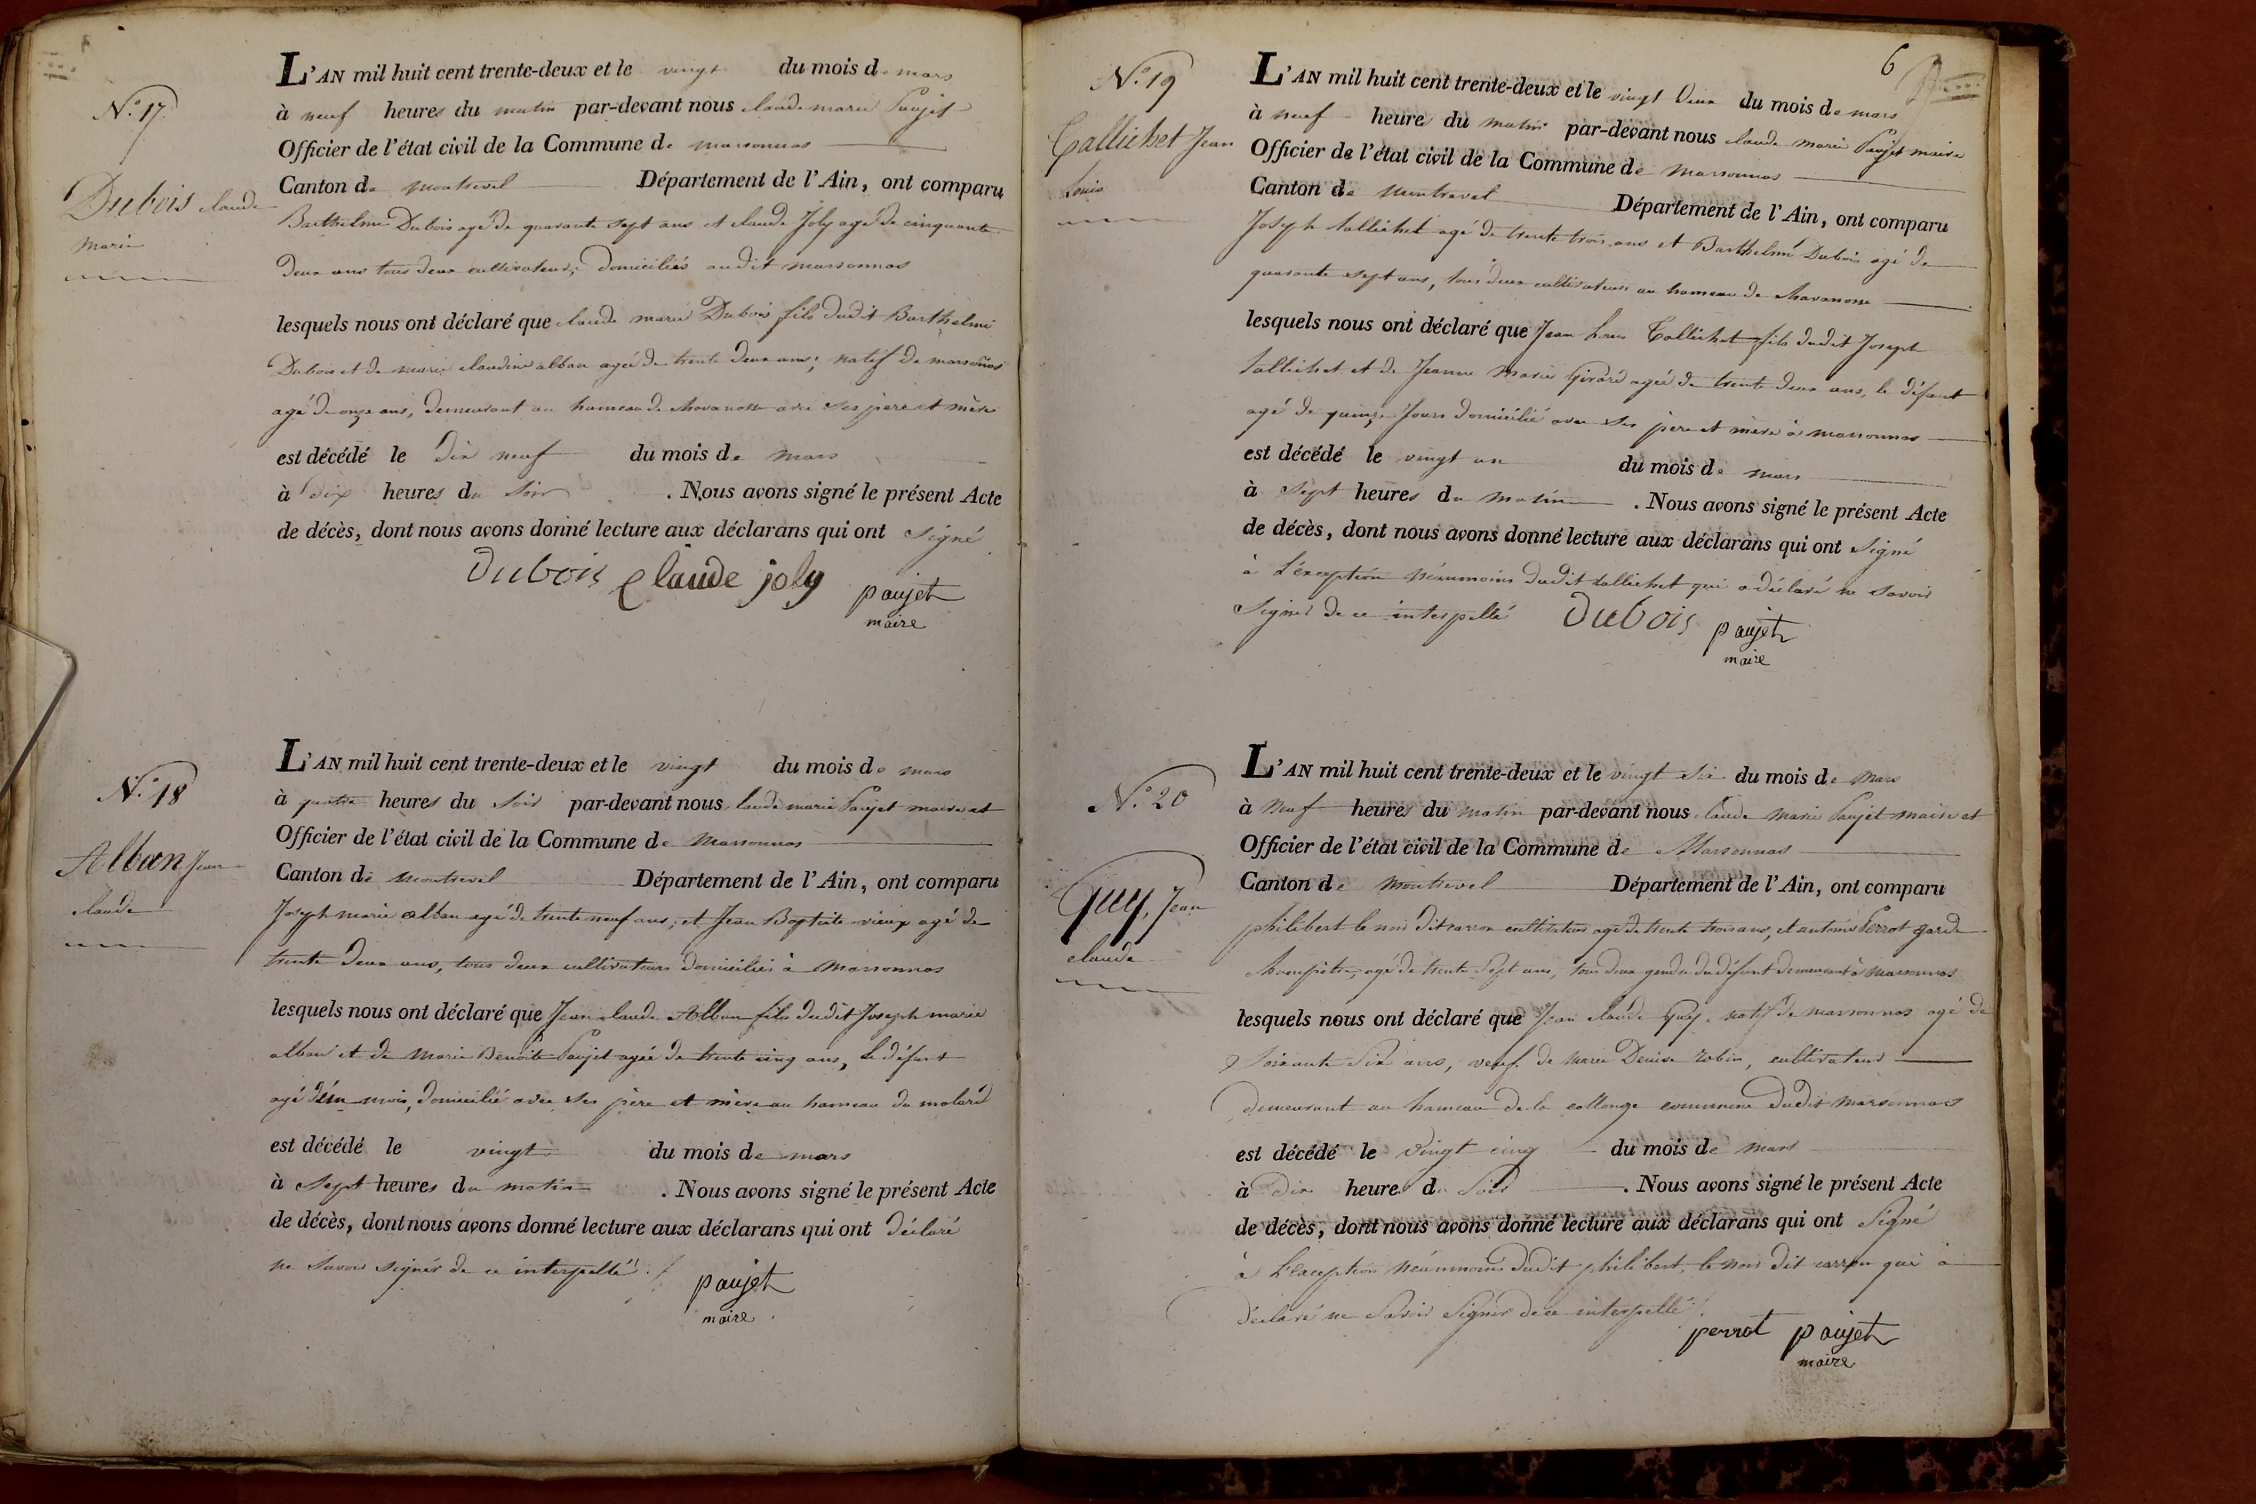 N.° 17.
Dubois claude
marie
L'AN mil huit cent trente-deux et le vingt du mois de mars
à neuf heures du matin par-devant nous claude marie Paujet
Officier de l'état civil de la Commune de marsonnas
Canton de montrevel Département de l'Ain, ont comparu
Barthelmi Dubois agé de quarante sept ans et claude Joly agé de cinquante
deux ans tous deux cultivateurs, domiciliés audit marsonnas
lesquels nous ont déclaré que claude marie Dubois fils dudit Barthelmi
Dubois et de marie claudine alban agée de trente deux ans; natif de marsonnas
agé de onze ans, demeurant au hameau de chavanosse avec ses père et mère
est décédé le dix neuf du mois de mars
à dix heures du soir . Nous avons signé le présent Acte
de décès, dont nous avons donné lecture aux déclarans qui ont signé
Dubois claude joly paujet
maire
N.° 18
Alban Jean
claude
L'AN mil huit cent trente-deux et le vingt du mois de mars
à quatre heures du soir par-devant nous claude marie Paujet maire et
Officier de l'état civil de la Commune de marsonnas
Canton de montrevel Département de l'Ain, ont comparu
Joseph marie alban agé de trente neuf ans, et Jean Baptiste vieux agé de
trente deux ans, tous deux cultivateurs domiciliés à marsonnas
lesquels nous ont déclaré que Jean claude Alban fils dudit Joseph marie
alban et de marie Benoite Paujet agée de trente cinq ans, le défunt
agé d'un mois, domicilié avec ses père et mère au hameau du molard
est décédé le vingt du mois de mars
à sept heures du matin . Nous avons signé le présent Acte
de décès, dont nous avons donné lecture aux déclarans qui ont déclaré
ne savoir signer de ce interpellé ./.
paujet
maire
6
N.° 19
Tallichet Jean
Louis
L'AN mil huit cent trente-deux et le vingt deux du mois de mars
à neuf heures du matin par-devant nous claude marie Paujet maire
Officier de l'état civil de la Commune de marsonnas
Canton de montrevel Département de l'Ain, ont comparu
Joseph tallichet agé de trente trois ans et Barthelmi Dubois agé de
quarante sept ans, tous deux cultivateurs au hameau de chavanosse
lesquels nous ont déclaré que Jean Louis Tallichet fils dudit Joseph
tallichet et de Jeanne Marie Girard agée de trente deux ans, le défunt
agé de quinze Jours domicilié avec ses père et mère à marsonnas
est décédé le vingt un du mois de mars
à sept heures du matin . Nous avons signé le présent Acte
de décès, dont nous avons donné lecture aux déclarans qui ont signé
à L'éxception néammoins dudit tallichet qui a déclaré ne savoir
signer de ce interpellé Dubois paujet
maire
N.° 20
Guy, Jean
claude
L'AN mil huit cent trente-deux et le vingt six du mois de mars
à neuf heures du matin par-devant nous claude marie Paujet maire et
Officier de l'état civil de la Commune de Marsonnas
Canton de montrevel Département de l'Ain, ont comparu
philibert le noir dit carron cultivateur agé de trente trois ans, et antoine Perrot garde
champêtre, agé de trente sept ans, tous deux gendre du défunt demeurant à marsonnas
lesquels nous ont déclaré que Jean claude Guy, natif de marsonnas agé de
soixante six ans, veuf de marie Denise robin, cultivateur
demeurant au hameau de la collonge commune dudit marsonnas
est décédé le vingt cinq du mois de mars
à dix heures du soir . Nous avons signé le présent Acte
de décès, dont nous avons donné lecture aux déclarans qui ont signé
à L'exception néammoins dudit philibert le noir dit carron qui à
déclaré ne savoir signer de ce interpellé ./.
perrot paujet
maire